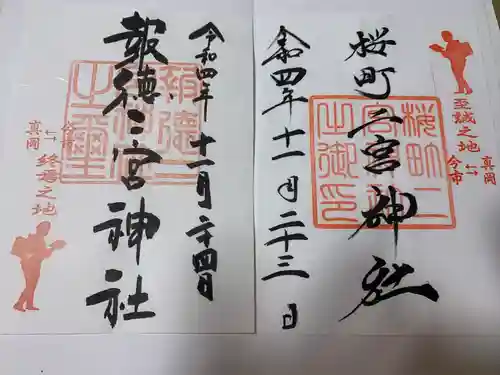 至誠之地
真岡
←→
今市
桜町二宮神社
桜町二
宮神社
之御印
令和四年十一月二十三日
令和四年十一月二十四日
報徳二宮神社
報徳二
宮神社
之璽
今市
←→
真岡
終焉之地